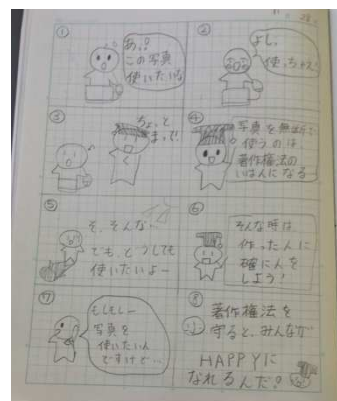 ①
あ、!
この写真
使いたいな
②
よし、
使っちゃえ
③
ちょっと
まって!
④
写真を無断で
使うのは
著作権法の
いはんになる
⑤
そ、そんな…
でも、どうしても
使いたいよー
⑥
そんな時は
作った人に
確にんを
しよう!
⑦
もしもしー
写真を
使いたいん
ですけど…
⑧
著作権法を
守ると、みんなが
HAPPYに
なれるんだ?